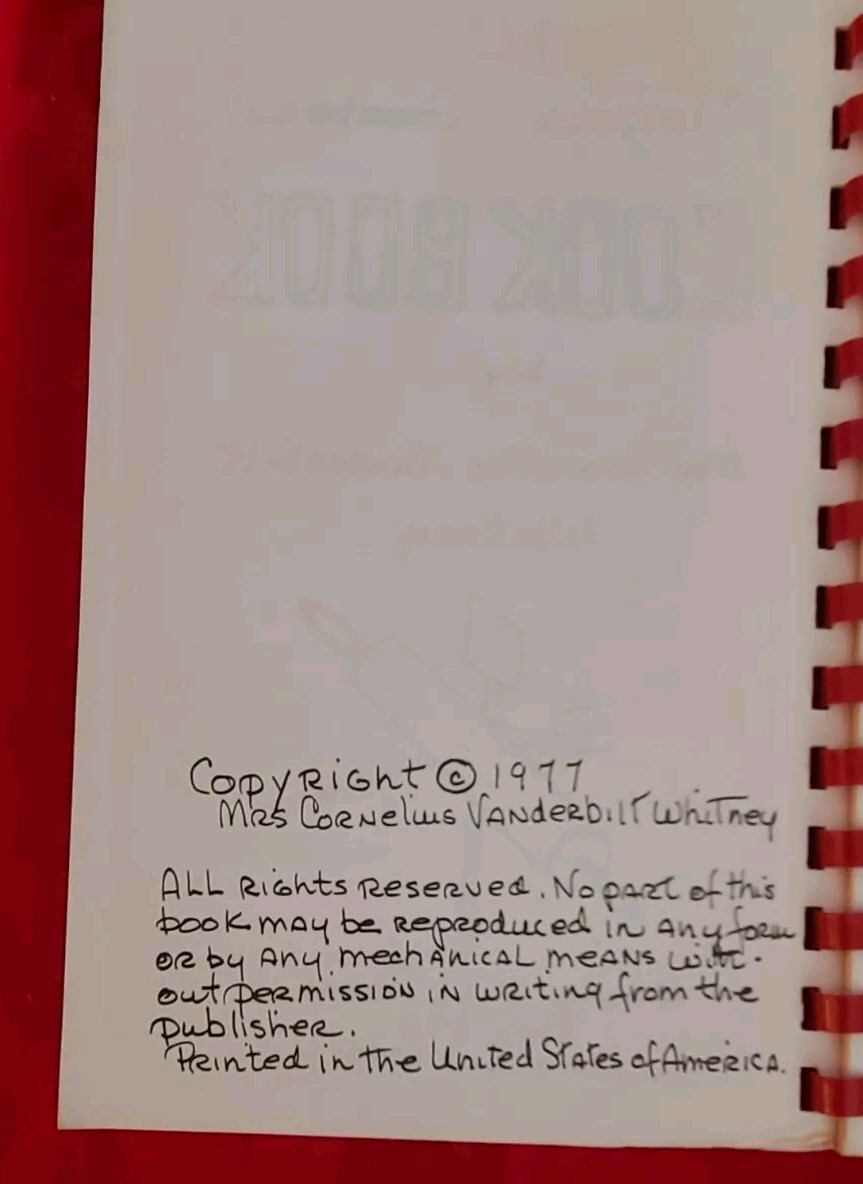 Copyright © 1977
Mrs Cornelius Vanderbilt Whitney
All Rights Reserved. No part of this
book may be reproduced in any form
or by any mechanical means with-
out permission in writing from the
publisher.
Printed in the United States of America.